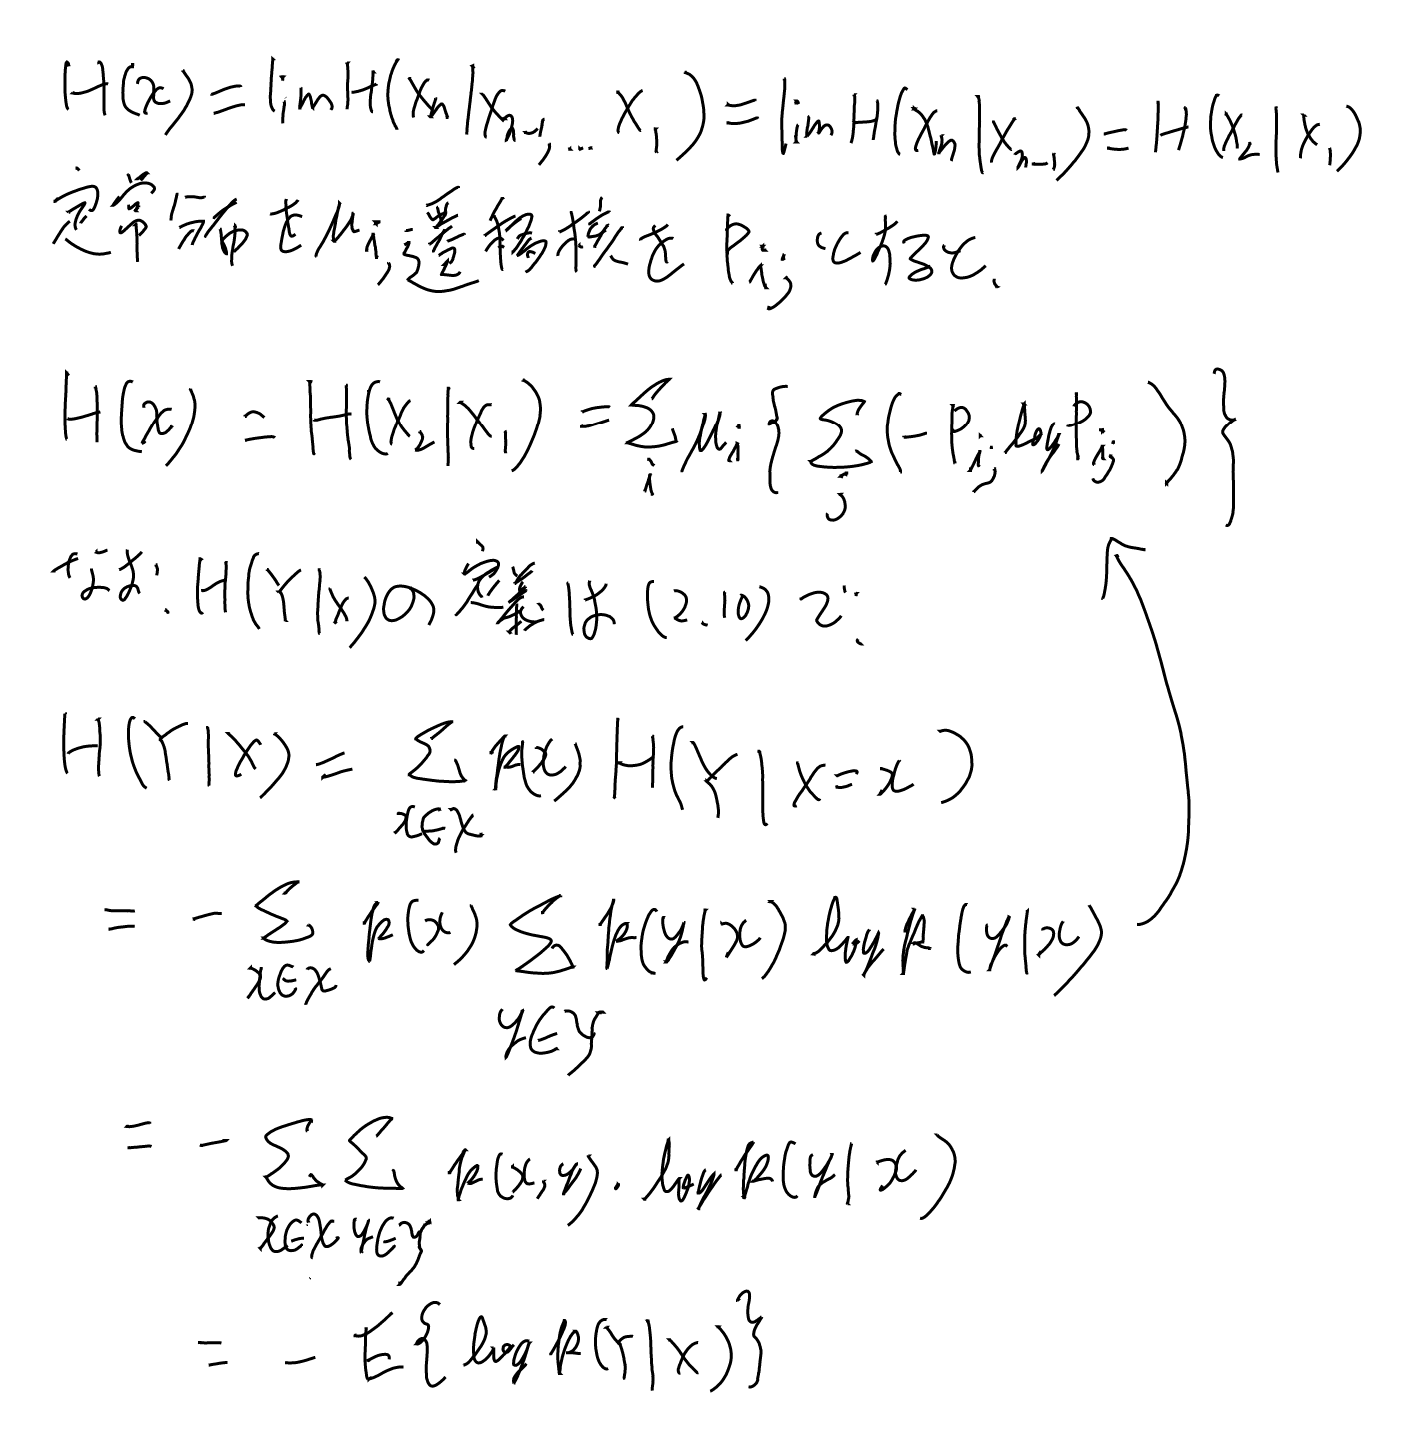 H(x) = lim H(Xn|Xn-1, ... X1) = lim H(Xn|Xn-1) = H(X2|X1)
定常分布をμi, 遷移核を Pij とすると、
H(x) = H(X2|X1) = Σi μi { Σj (-Pij log Pij) }
なお、H(Y|X)の定義は (2.10) で、
H(Y|X) = Σx∈X p(x) H(Y|X=x)
= - Σx∈X p(x) Σy∈Y p(y|x) log p(y|x)
= - Σx∈X Σy∈Y p(x,y)・log p(y|x)
= - E{log p(Y|X)}